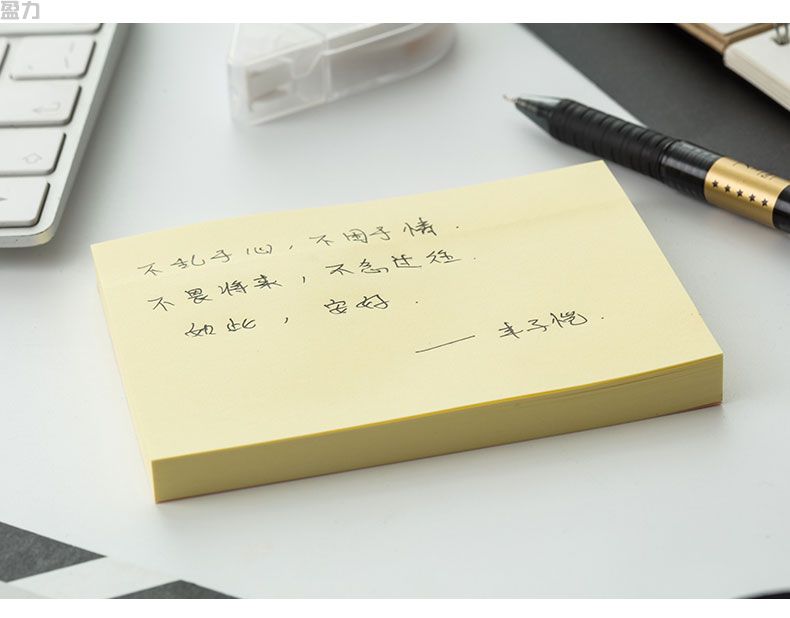 盈力
不乱于心，不困于情.
不畏将来，不念过往.
如此，安好.
—— 丰子恺.